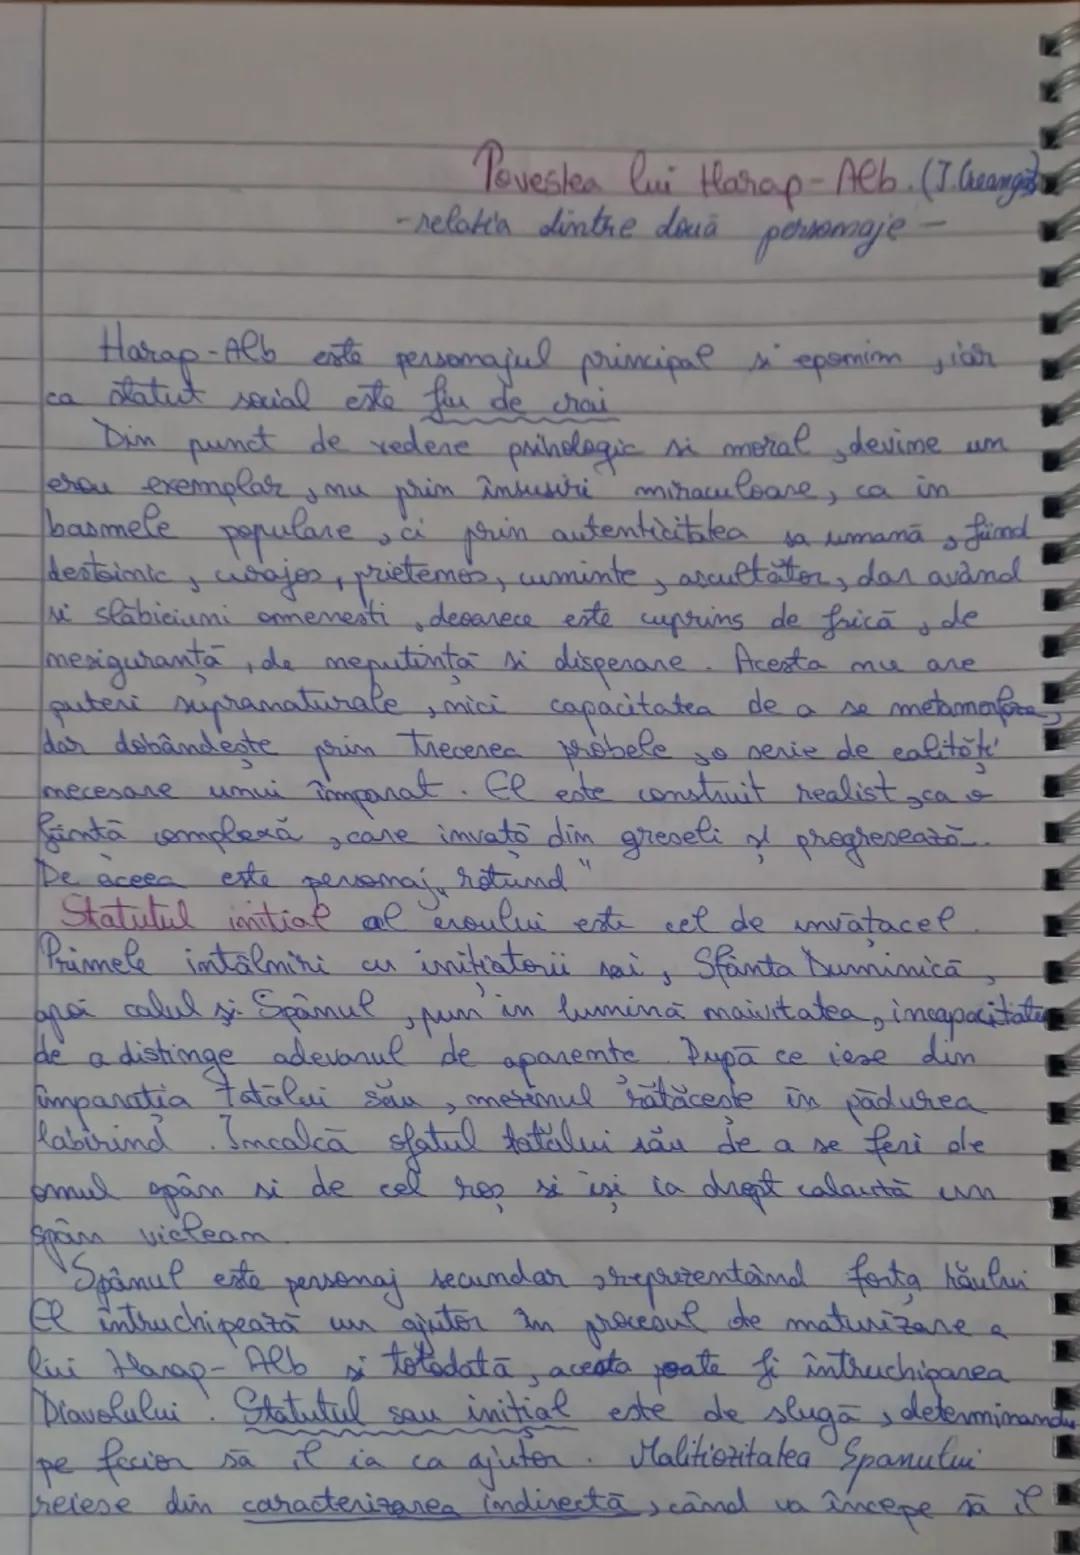 Povestea lui Harap-Alb. (I. Creangă)
- relatia dintre două personaje -
Harap-Alb este personajul principal si eponim, iar
ca statut social este fiu de crai
Din punct de vedere psihologic si moral, devine un
erou exemplar, nu prin însusiri miraculoase, ca in
basmele populare, ci prin autenticitatea sa umană, fiind
destoinic, curajos, prietenos, cuminte, ascultător, dar având
si slăbiciuni omenesti, deoarece este cuprins de frică, de
nesiguranță, de neputință si disperare. Acesta nu are
puteri supranaturale, nici capacitatea de a se metamorfoza,
dar dobândește prin trecerea probele, o serie de calități
necesare unui împarat. El este construit realist, ca o
ființă complexă, care invață din greseli și progresează.
De aceea este personaj „rotund"
Statutul inițial al eroului este cel de invățacel.
Primele intâlniri cu inițiatorii sai, Sfânta Duminică,
apoi calul și Spânul, pun in lumină naivitatea, incapacitatea
de a distinge adevarul de aparente. După ce iese din
împarația tatălui său, mezinul rătăcește în pădurea
labirind. Incalcă sfatul tatălui său de a se feri de
omul spân si de cel roș și iși ia drept calauză un
spân viclean.
Spânul este personaj secundar, reprezentând forța răului
El întruchipează un ajutor în procesul de maturizare a
lui Harap-Alb și totodată, acesta poate fi întruchiparea
Diavolului. Statutul sau inițial este de slugă, determinandu
pe fecior să îl ia ca ajutor. Malitiozitatea Spanului
reiese din caracterizarea indirectă, când va începe să îl